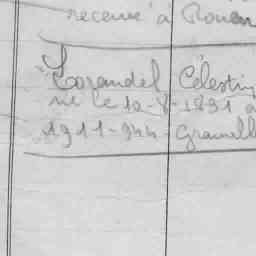 recensé à Rouen
Lorandel Célestin
né le 10-8-1891 à
1911-944-Granvill